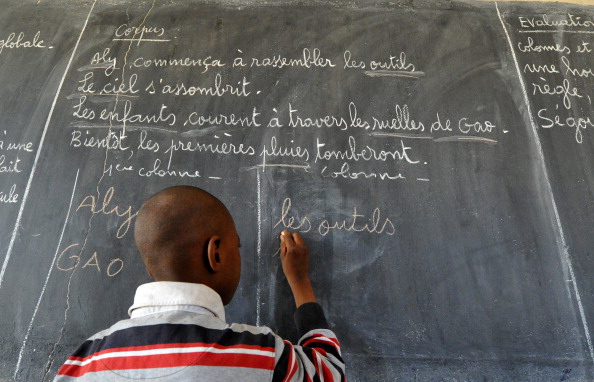 globale.
à une
ule
Corpus
Aly, commença à rassembler les outils
Le ciel s'assombrit.
Les enfants, courent à travers les ruelles de Gao.
Bientôt, les premières pluies tomberont.
1ère colonne - colonne -
Aly les outils
GAO
Evaluation
colonnes et
une
règle,
Ségou